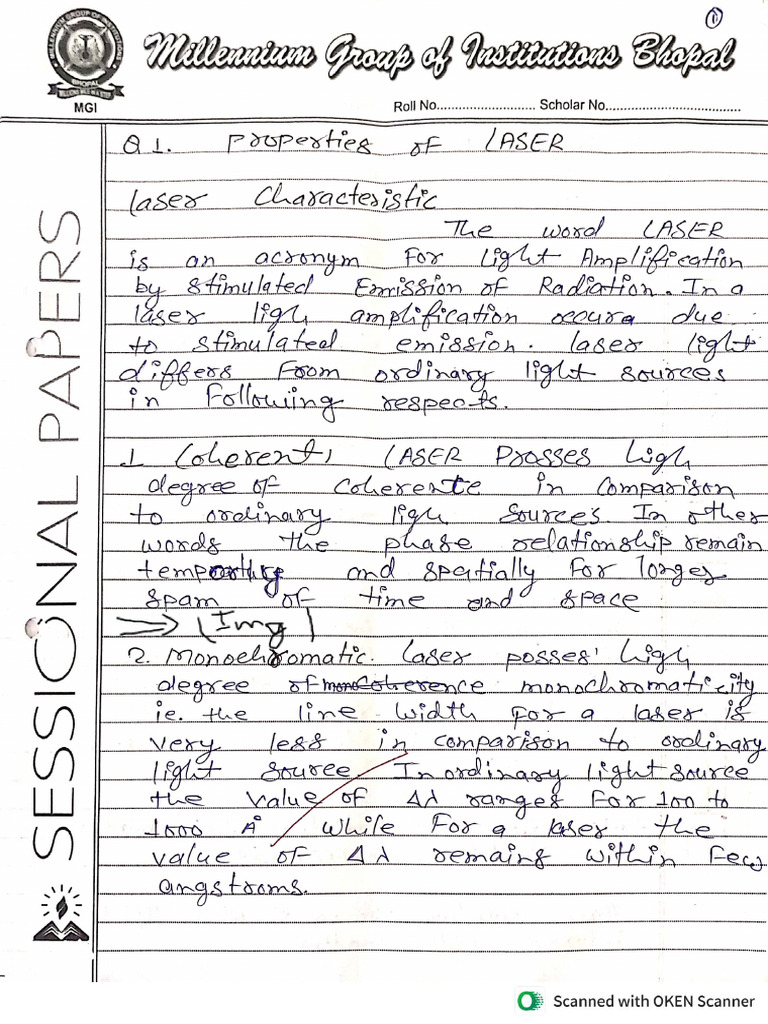 ①
Millennium Group of Institutions Bhopal
MGI
Roll No.......................... Scholar No...................................
SESSIONAL PAPERS
Q 1. Properties of LASER
laser Characteristic
The word LASER
is an acronym For Light Amplification
by stimulated Emission of Radiation. In a
laser ligh amplification occura due
to stimulated emission. laser light
differs From ordinary light sources
in Following respects.
1 Coherent) LASER Prosses high
degree of coherente in comparison
to ordinary ligh sources. In other
words the phase relationship remain
and spatially For longer
spam of time and space
⇒ (Img)
2. Monochromatic. laser posses' high
degree of monochromaticity
ie. the line width For a laser is
very less in comparison to ordinary
light source. In ordinary light source
the value of Δλ ranges For 100 to
1000 A° while For a laser the
value of Δλ remains within Few
angstroms.
Scanned with OKEN Scanner